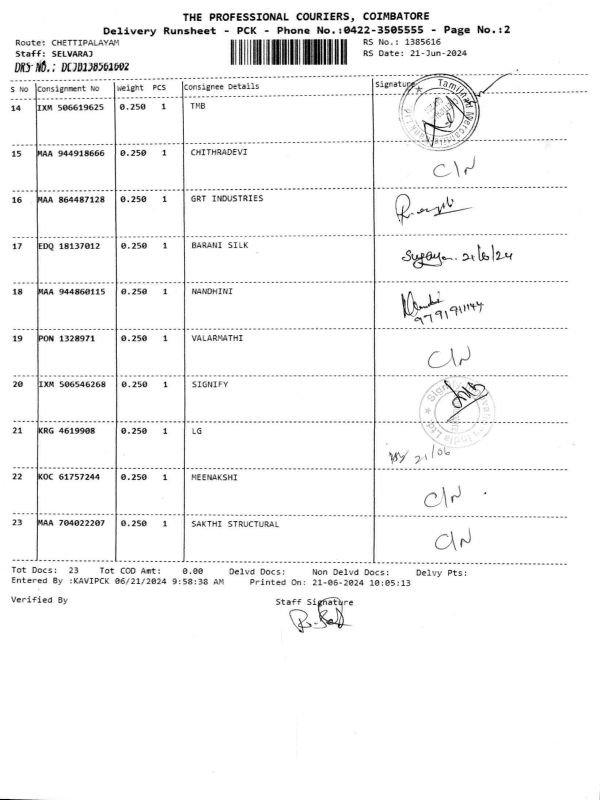 THE PROFESSIONAL COURIERS, COIMBATORE
Delivery Runsheet - PCK - Phone No.:0422-3505555 - Page No.:2
Route: CHETTIPALAYAM RS No.: 1385616
Staff: SELVARAJ RS Date: 21-Jun-2024
DRS NO.: DCJD138561602
S No Consignment No Weight PCS Consignee Details Signature
14 IXM 506619625 0.250 1 TMB
15 MAA 944918666 0.250 1 CHITHRADEVI C/N
16 MAA 864487128 0.250 1 GRT INDUSTRIES
17 EDQ 18137012 0.250 1 BARANI SILK 21/6/24
18 MAA 944860115 0.250 1 NANDHINI
9791911144
19 PON 1328971 0.250 1 VALARMATHI C/N
20 IXM 506546268 0.250 1 SIGNIFY
21 KRG 4619908 0.250 1 LG 21/06
22 KOC 61757244 0.250 1 MEENAKSHI C/N
23 MAA 704022207 0.250 1 SAKTHI STRUCTURAL C/N
Tot Docs: 23 Tot COD Amt: 0.00 Delvd Docs: Non Delvd Docs: Delvy Pts:
Entered By :KAVIPCK 06/21/2024 9:58:38 AM Printed On: 21-06-2024 10:05:13
Verified By Staff Signature